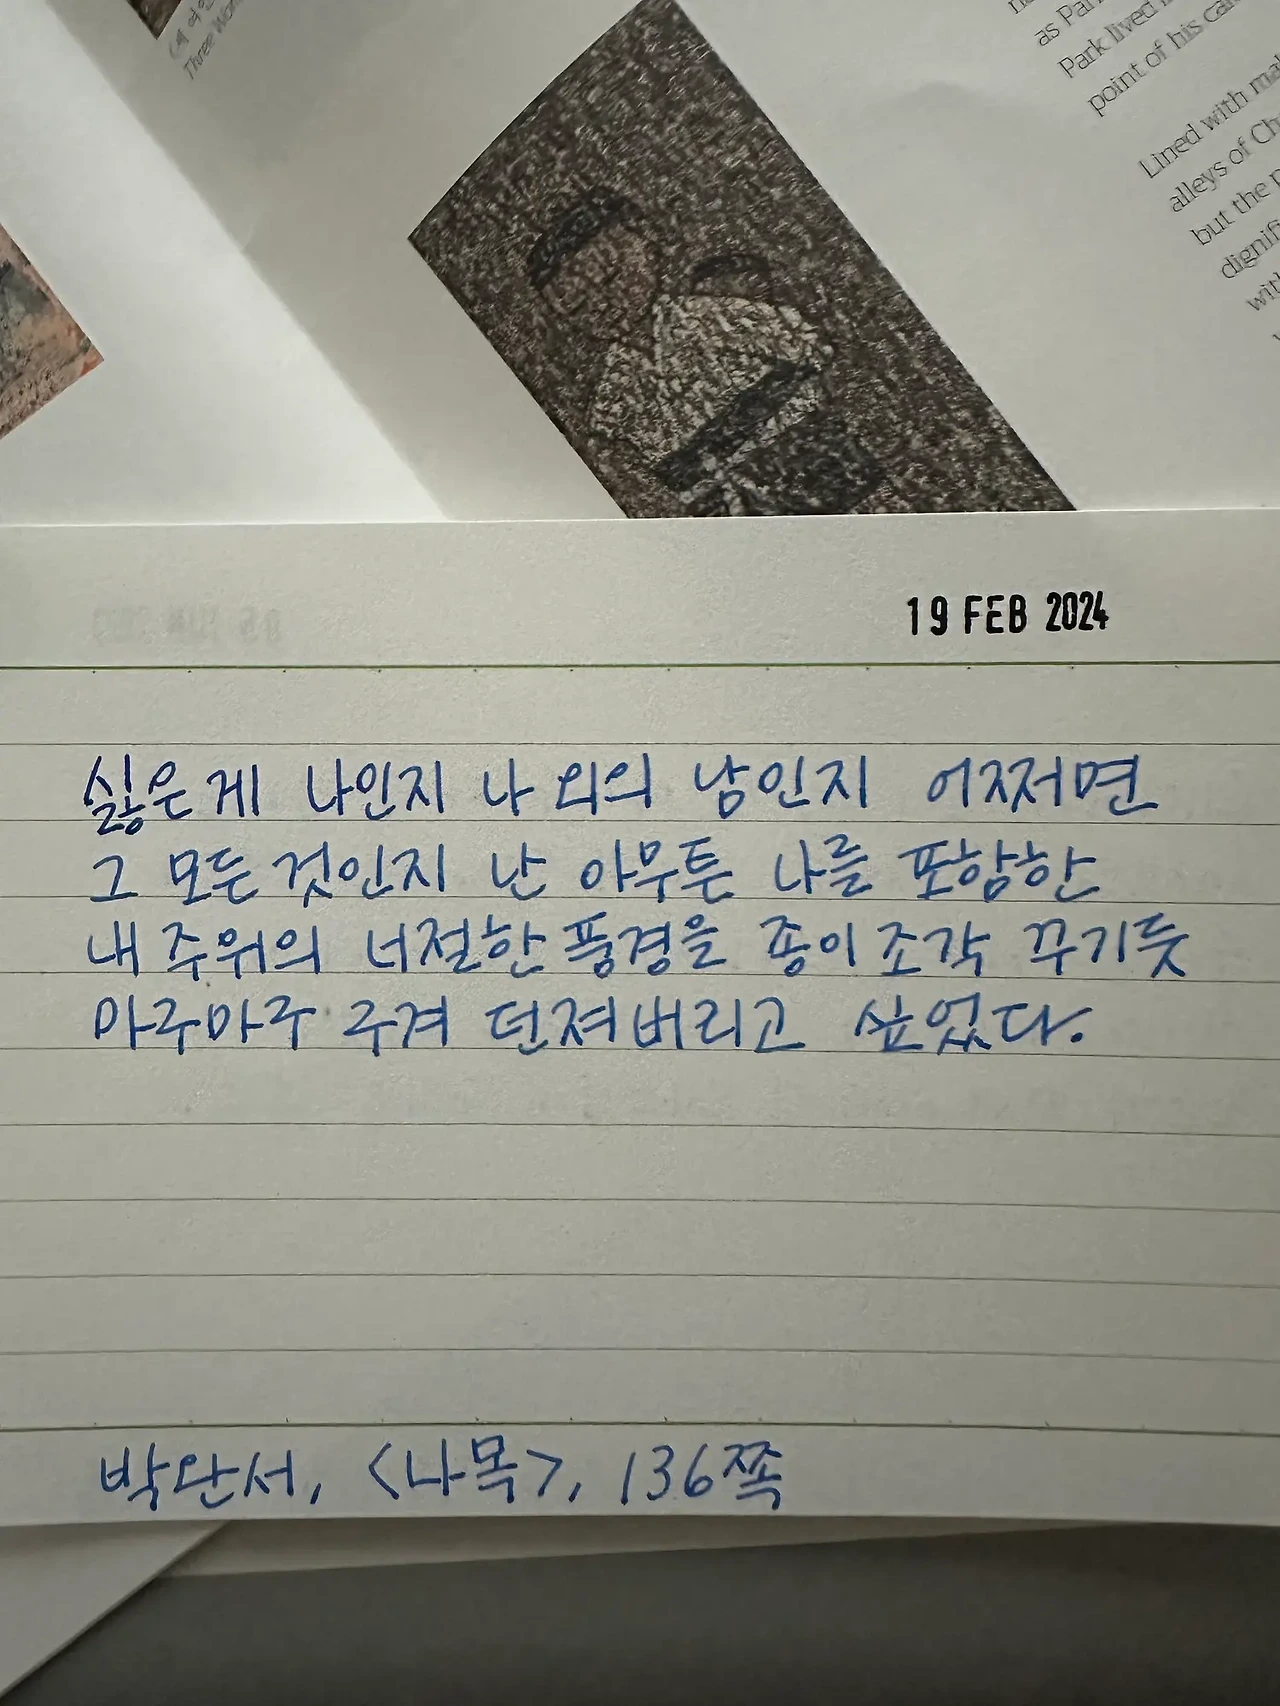 Three Wom
as Par
Park lived
point of his car
Lined with ma
alleys of Ch
but the p
dignifi
with
19 FEB 2024
싫은 게 나인지 나 외의 남인지 어쩌면
그 모든 것인지 난 아무튼 나를 포함한
내 주위의 너절한 풍경을 종이 조각 꾸기듯
마구마구 구겨 던져버리고 싶었다.
박완서, <나목>, 136쪽